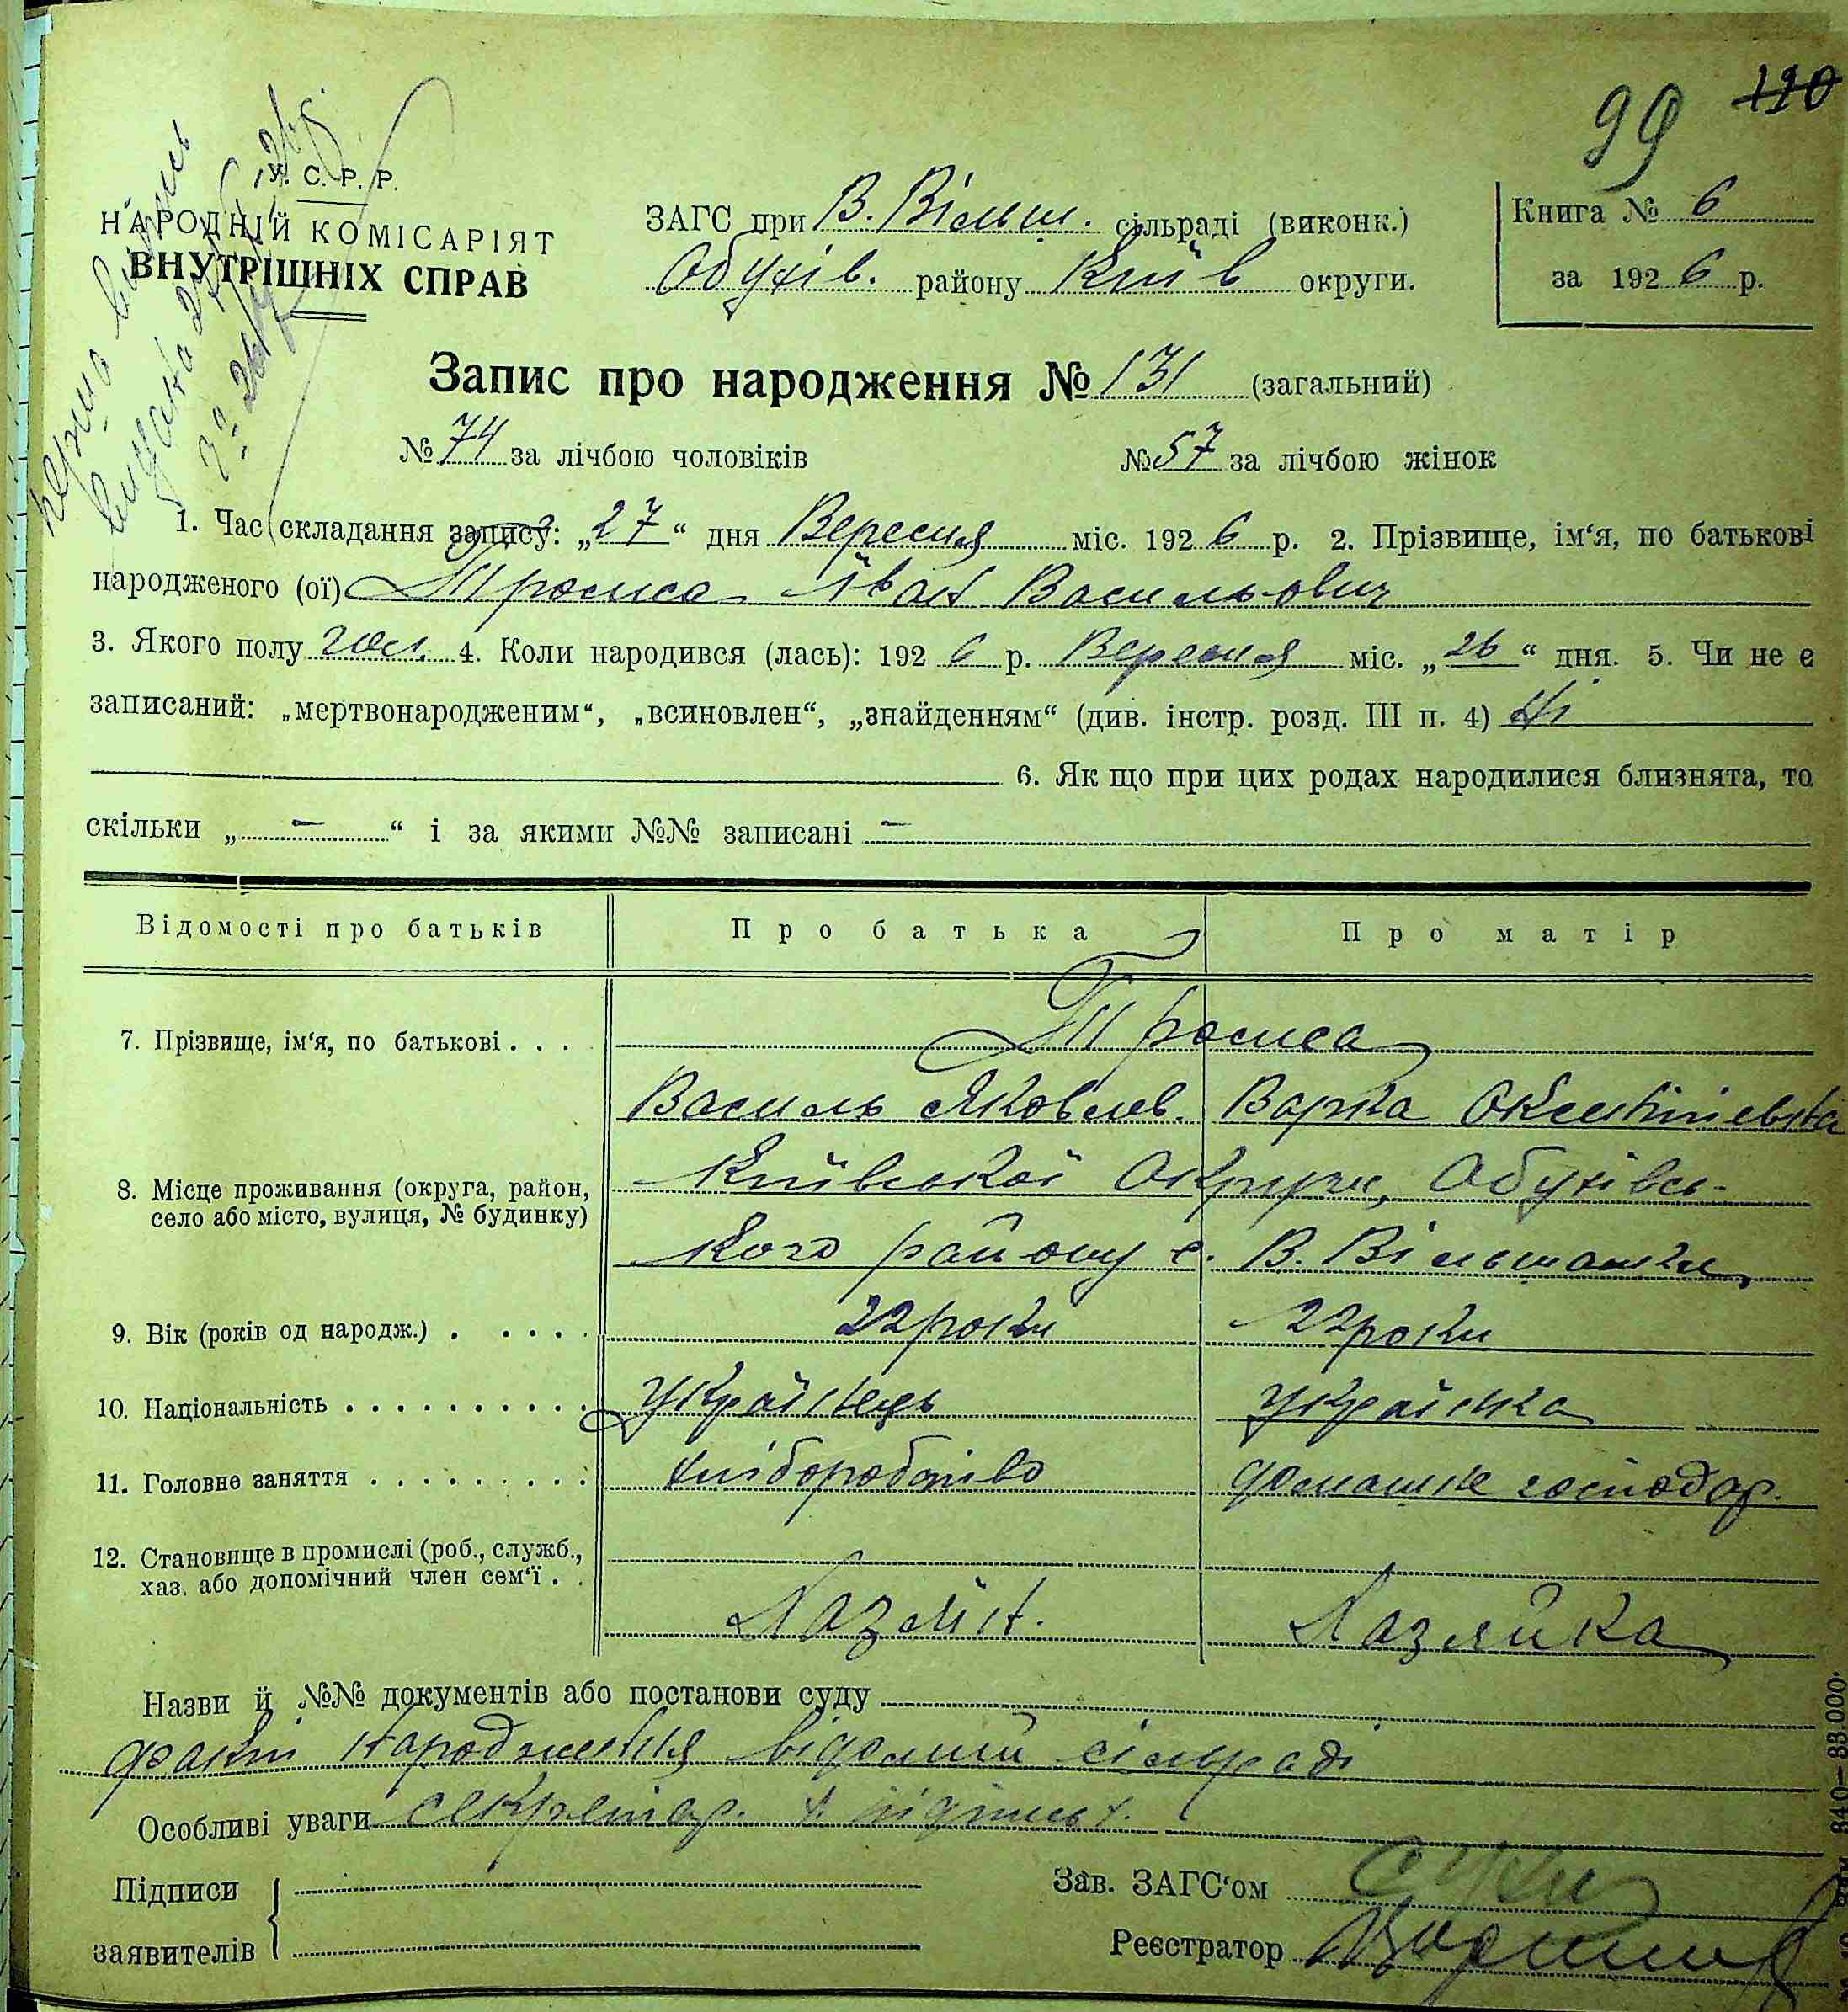 99 110
У. С. Р. Р.
НАРОДНІЙ КОМІСАРІЯТ
ВНУТРІШНІХ СПРАВ
перша випись
видана
ЗАГС при В. Вільш. сільраді (виконк.)
Обухів. району Київ округи.
Книга № 6
за 1926 р.
Запис про народження № 131 (загальний)
№ 74 за лічбою чоловіків № 57 за лічбою жінок
1. Час складання запису: „27“ дня Вересня міс. 1926 р. 2. Прізвище, ім‘я, по батькові
народженого (ої) Троиса Іван Васильович
3. Якого полу чол. 4. Коли народився (лась): 1926 р. Вересня міс. „26“ дня. 5. Чи не є
записаний: „мертвонародженим“, „всиновлен“, „знайденням“ (див. інстр. розд. III п. 4) Ні
6. Як що при цих родах народилися близнята, то
скільки „ — “ і за якими №№ записані —
Відомості про батьків Про батька Про матір
7. Прізвище, ім‘я, по батькові . . . Троиса
Василь Яковлев. Варка Оксентіевна
8. Місце проживання (округа, район, село або місто, вулиця, № будинку) Київської Округи, Обухівсь-
кого району с. В. Вільшанки
9. Вік (років од народж.) . . . . . 22 роки 22 роки
10. Національність . . . . . . . . . . Українець Українка
11. Головне заняття . . . . . . . . . хліборобство домашнє господар.
12. Становище в промислі (роб., служб.,
хаз. або допомічний член сем‘ї . .
Хазяїн. Хазяйка
Назви й №№ документів або постанови суду
факт народження відомий сільраді
Особливі уваги секретар.
Підписи
заявителів
Зав. ЗАГС‘ом
Реєстратор